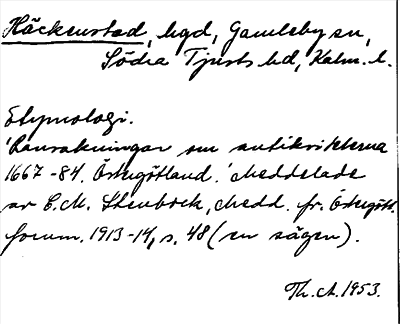 Häckenstad, hgd, Gamleby sn,
Södra Tjusts hd, Kalm. l.
Etymologi.
'Ransakningar om antikviteterna
1667-84. Östergötland.' Meddelade
av C.M. Stenbock, Medd. fr. Östergötl.
fornm. 1913-14, s. 48 (en sägen).
Th. A. 1953.